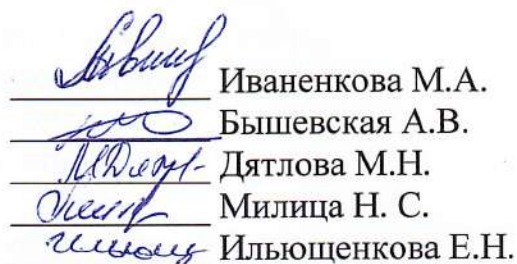 Иваненкова М.А.
Бышевская А.В.
Дятлова М.Н.
Милица Н. С.
Ильющенкова Е.Н.